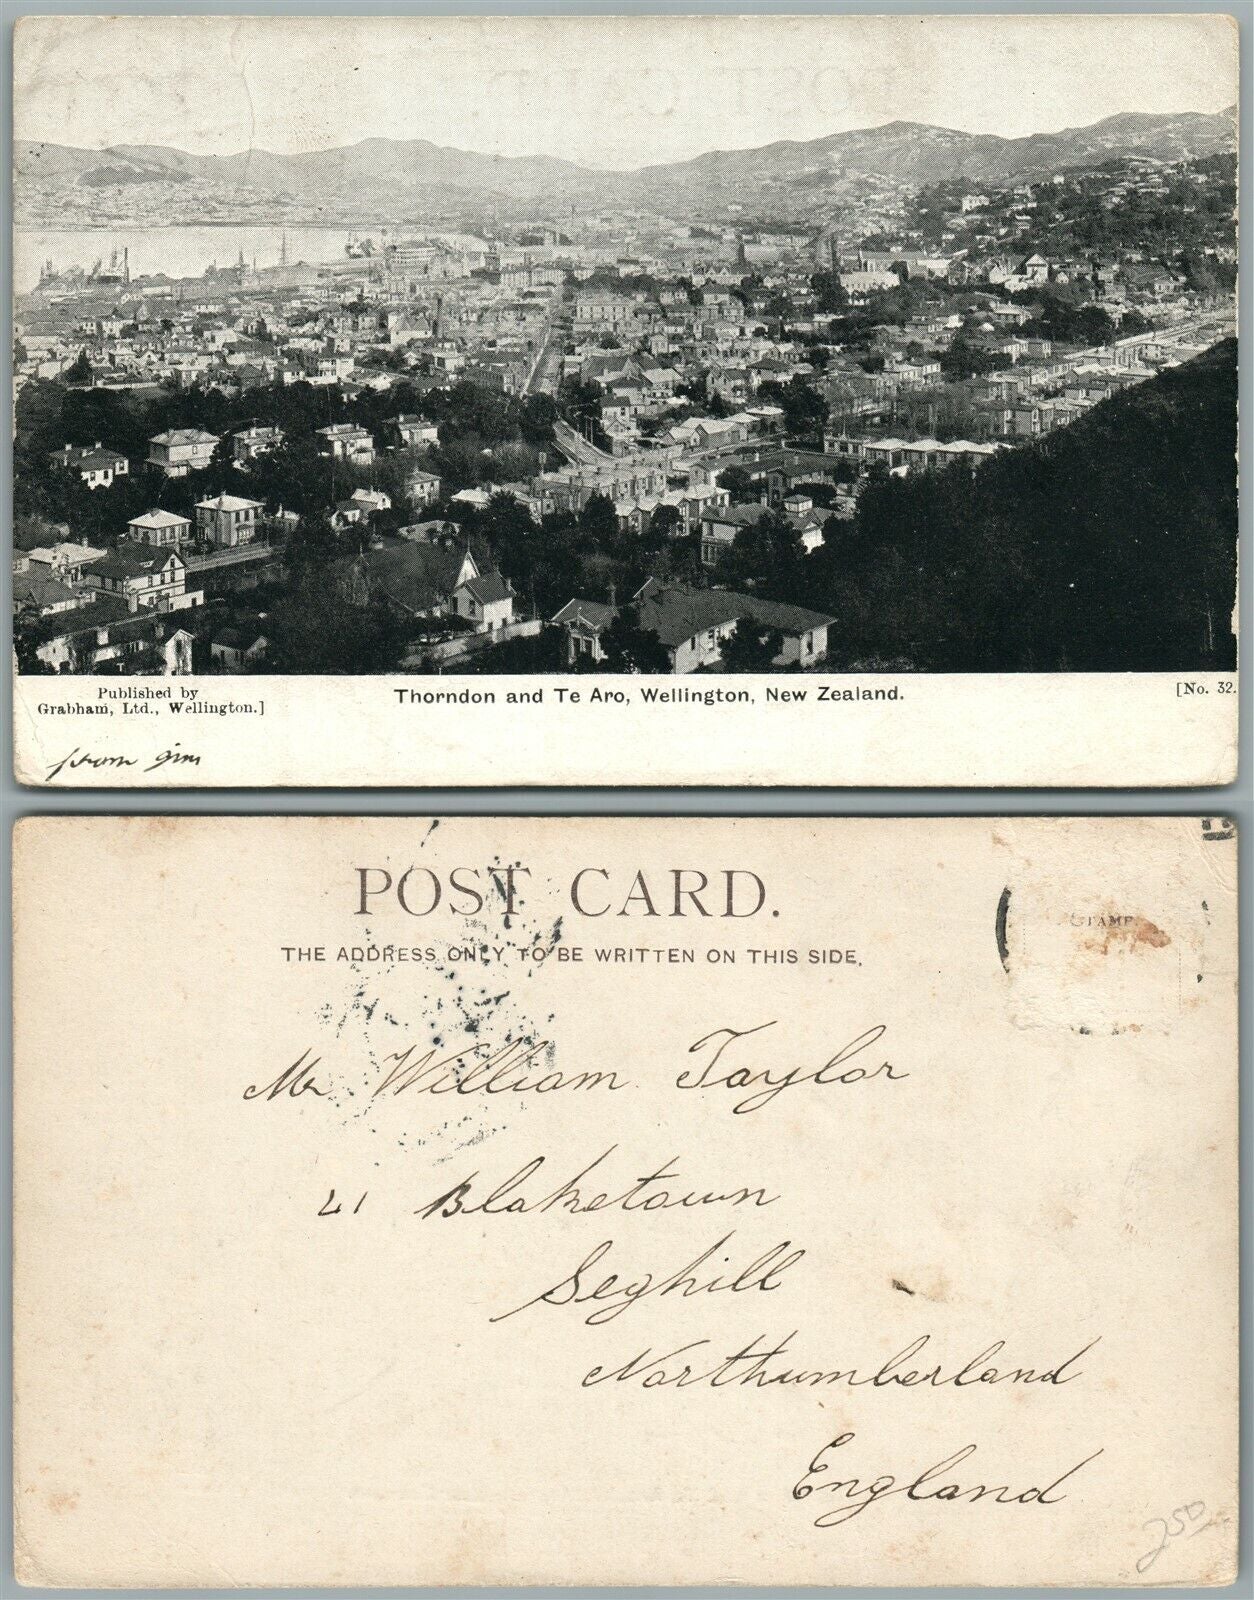 Published by
Grabham, Ltd., Wellington.]
Thorndon and Te Aro, Wellington, New Zealand.
[No. 32.
from Jim
POST CARD.
THE ADDRESS ONLY TO BE WRITTEN ON THIS SIDE.
STAMP
Mr William Taylor
21 Blaketown
Seghill
Northumberland
England
250